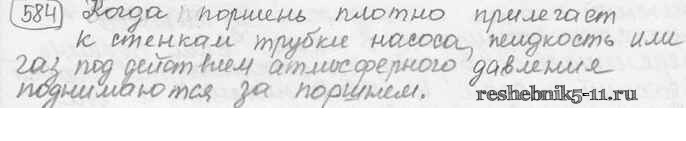 584) Когда поршень плотно прилегает
к стенкам трубки насоса, жидкость или
газ под действием атмосферного давления
поднимаются за поршнем.
reshebnik5-11.ru